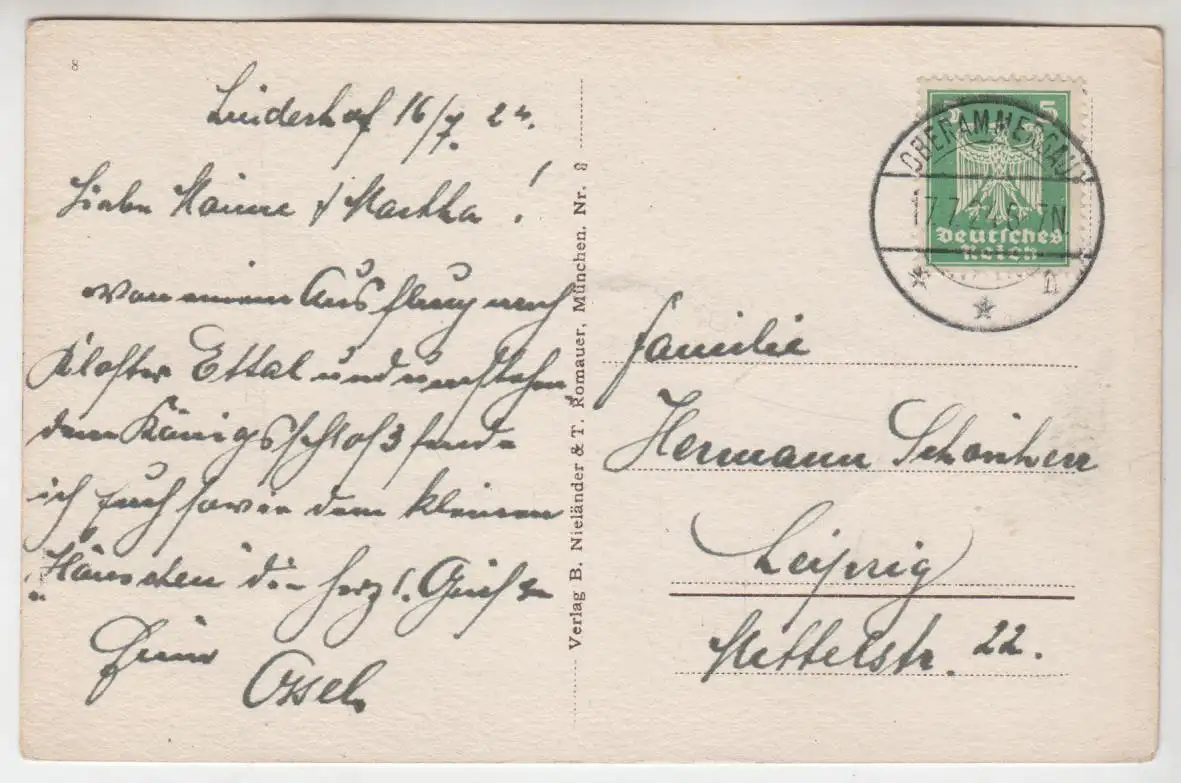 8
Linderhof 16/7. 24.
Liebe Männe & Martha!
Von einem Ausflug nach
Kloster Ettal und
dem Königsschloß sende
ich Euch sowie dem kleinen
"Hänschen die herzl. Grüße
Euer
Verlag B. Nieländer & T. Romauer, München, Nr. 8
5 5
Deutsches
Reich
OBERAMMERGAU
Familie
Hermann Schönherr
Leipzig
Mittelstr. 22.